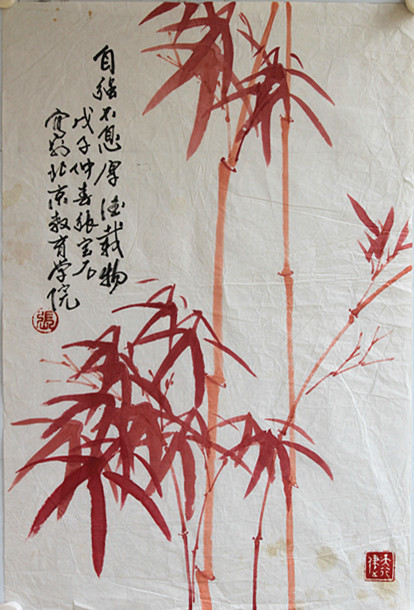 自强不息厚德载物
戊子仲春张宝石
寫於北京教育学院
張